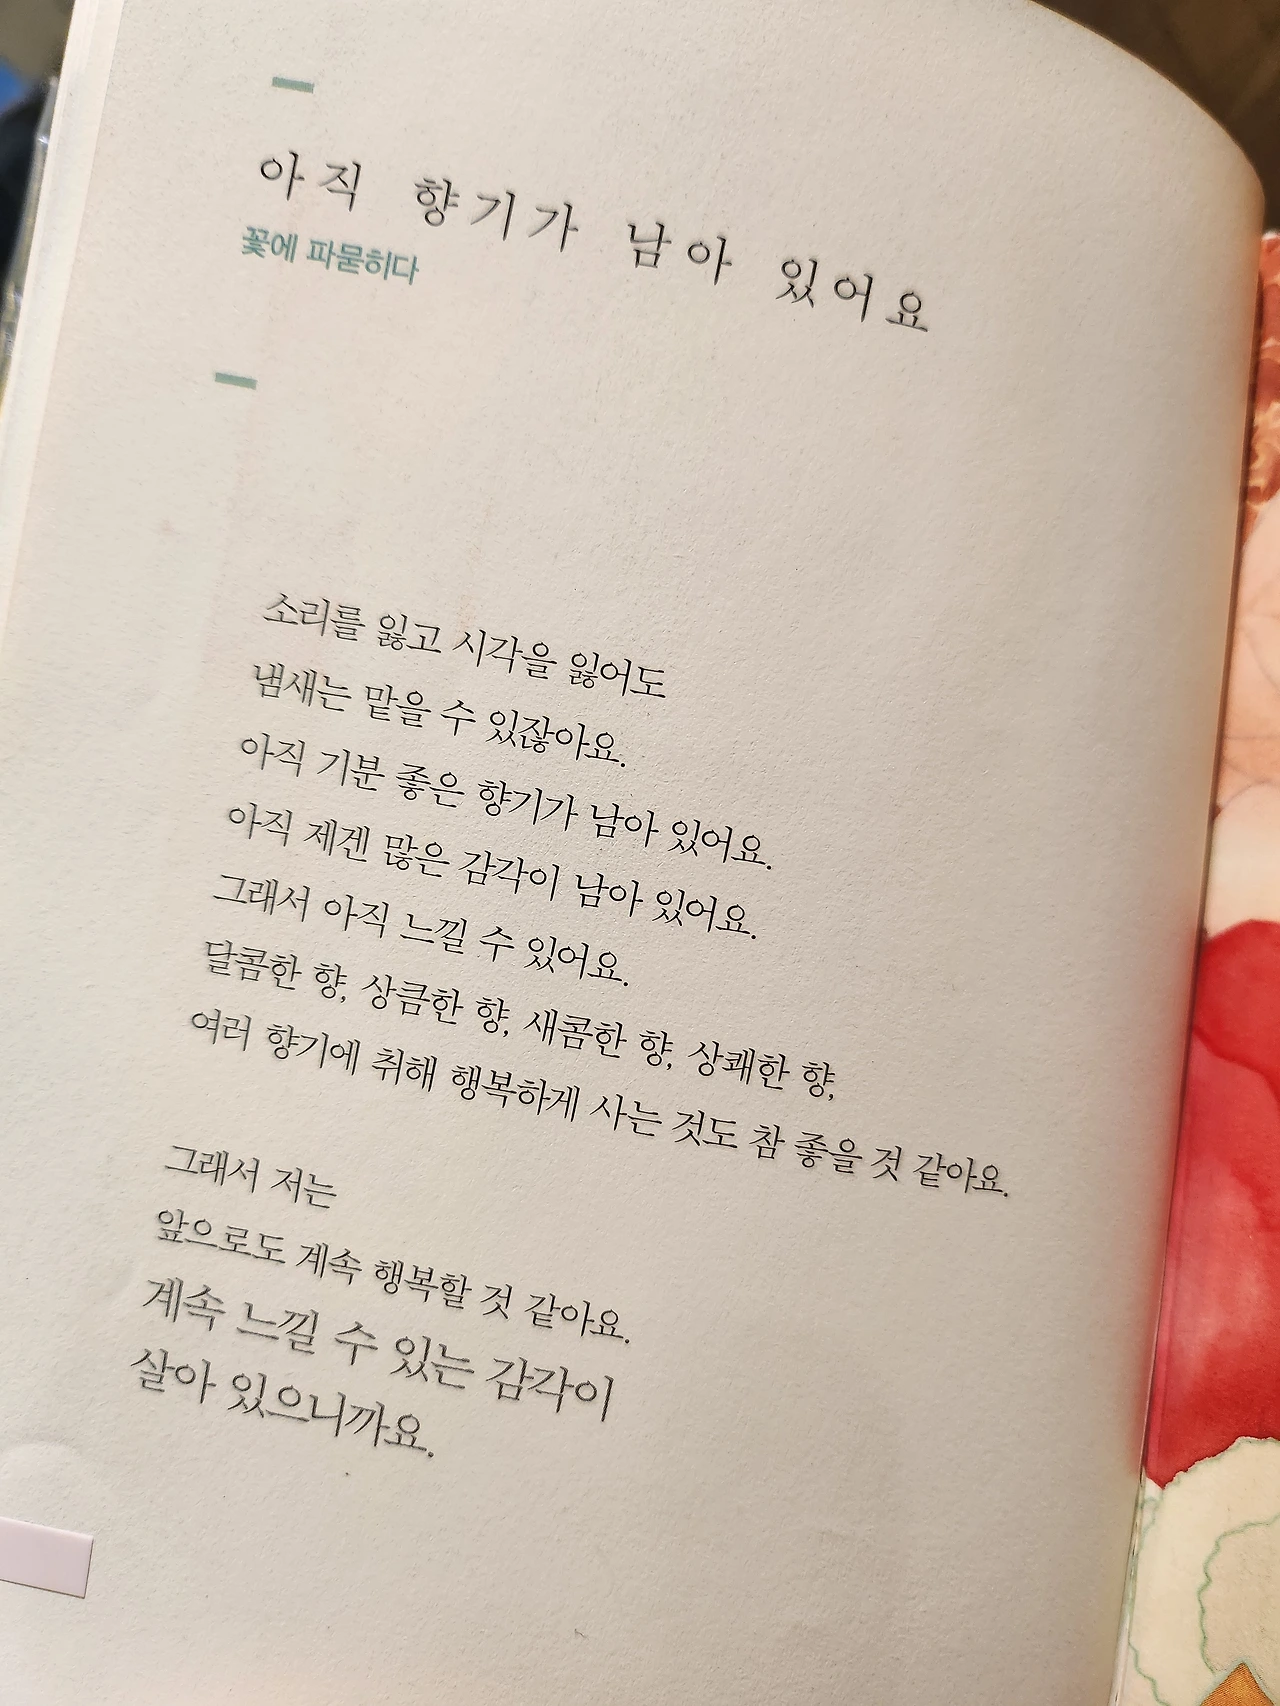 아직 향기가 남아 있어요
꽃에 파묻히다
소리를 잃고 시각을 잃어도
냄새는 맡을 수 있잖아요.
아직 기분 좋은 향기가 남아 있어요.
아직 제겐 많은 감각이 남아 있어요.
그래서 아직 느낄 수 있어요.
달콤한 향, 상큼한 향, 새콤한 향, 상쾌한 향,
여러 향기에 취해 행복하게 사는 것도 참 좋을 것 같아요.
그래서 저는
앞으로도 계속 행복할 것 같아요.
계속 느낄 수 있는 감각이
살아 있으니까요.